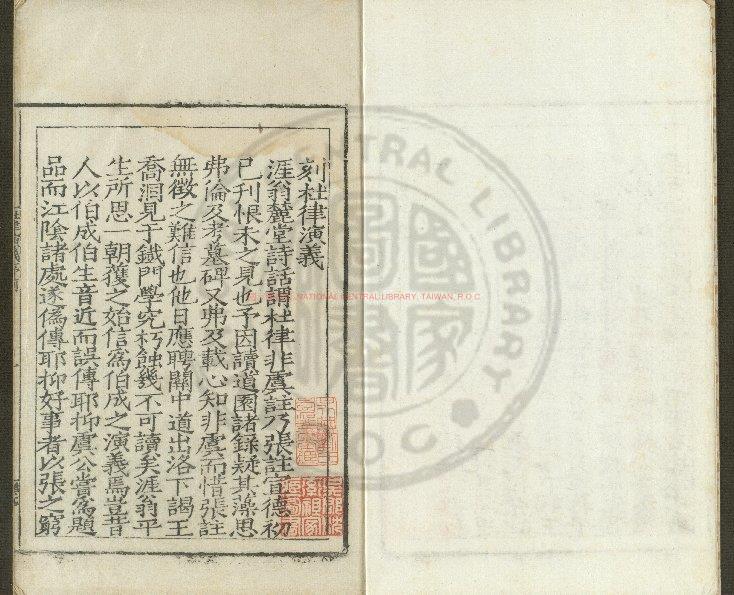 刻杜律演義
涯翁麓堂詩話謂杜律非虞註乃張註宣德初
已刋恨未之見也予因讀道園諸録疑其澡思
弗倫及考墓碑又弗及載心知非虞而惜張註
無徴之難信也他日應聘關中道出洛下謁王
喬洞見于鐵門學究朽蝕幾不可讀矣涯翁平
生所思一朝獲之始信爲伯成之演義焉豈昔
人以伯成伯生音近而誤傳耶抑虞公嘗爲題
品而江陰諸處遂僞傳耶抑好事者以張之窮
NATIONAL CENTRAL LIBRARY, TAIWAN, R.O.C.